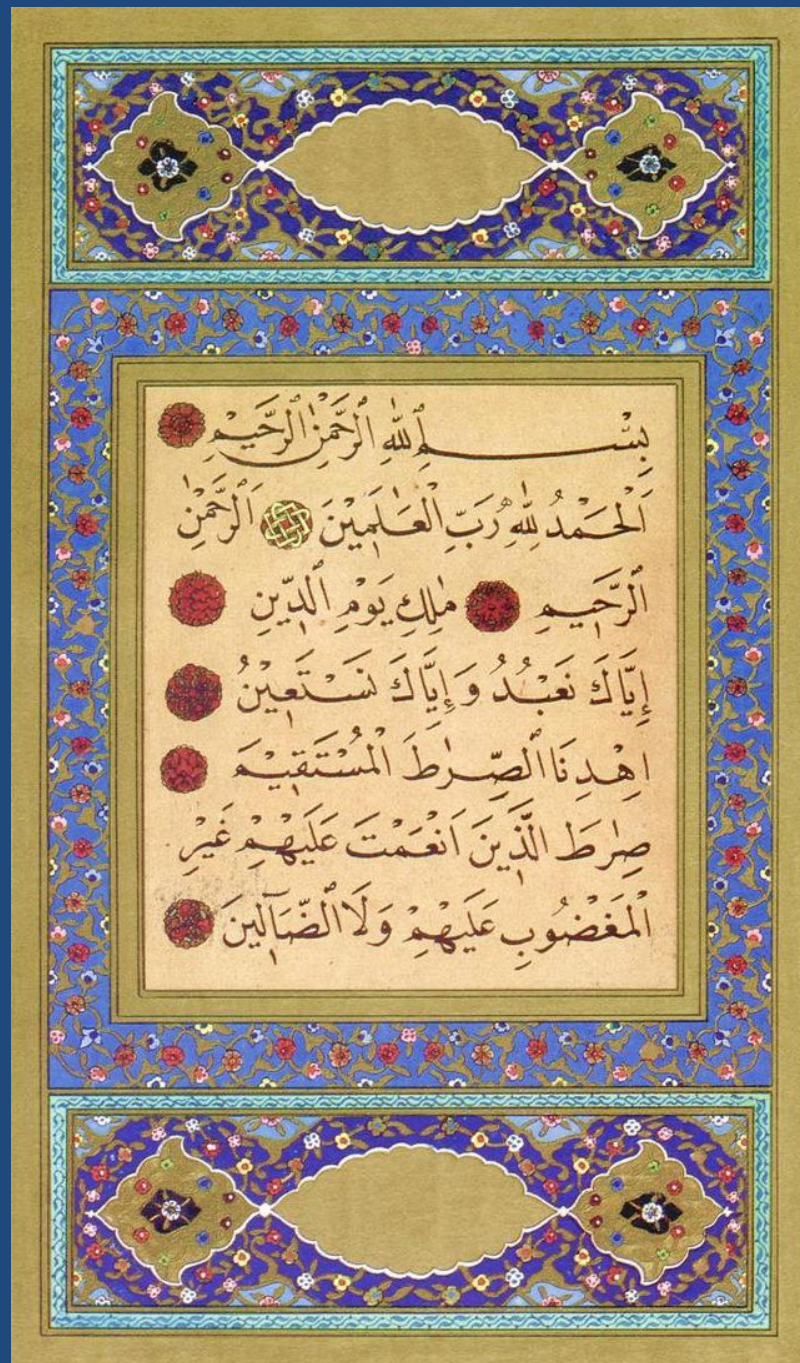 بِسْمِ ٱللّٰهِ ٱلرَّحْمٰنِ ٱلرَّحِيْمِ
اَلْحَمْدُ لِلّٰهِ رَبِّ الْعَالَمِيْنَ اَلرَّحْمٰنِ
ٱلرَّحِيْمِ مٰلِكِ يَوْمِ ٱلدِّيْنِ
إِيَّاكَ نَعْبُدُ وَإِيَّاكَ نَسْتَعِيْنُ
اِهْدِنَا ٱلصِّرٰطَ الْمُسْتَقِيْمَ
صِرٰطَ الَّذِيْنَ اَنْعَمْتَ عَلَيْهِمْ غَيْرِ
الْمَغْضُوبِ عَلَيْهِمْ وَلَا ٱلضَّآلِّيْنَ